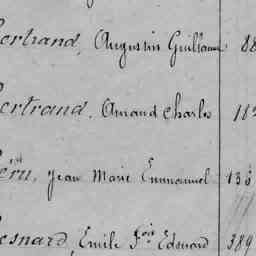 ertrand, Augustin Guillaume 88
ertrand, Amand Charles
Jean Marie Emmanuel 135
esnard, Emile F.ois Edouard 389